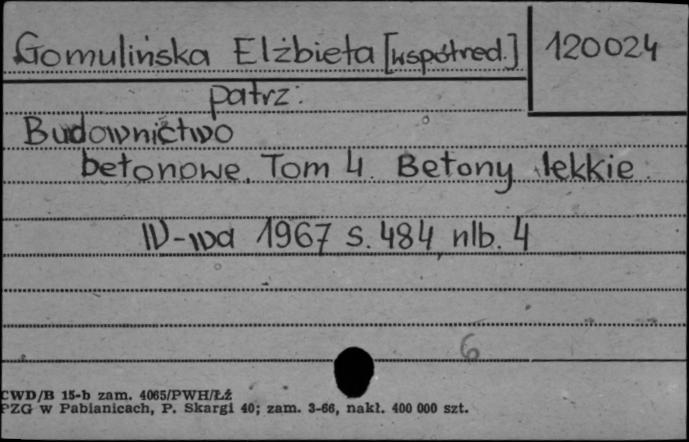 Gomulińska Elżbieta [współred.]
120024
patrz:
Budownictwo
betonowe. Tom 4. Betony lekkie.
W-wa 1967 s. 484 nlb. 4
6
CWD/B 15-b zam. 4065/PWH/Łź
PZG w Pabianicach, P. Skargi 40; zam. 3-66, nakł. 400 000 szt.